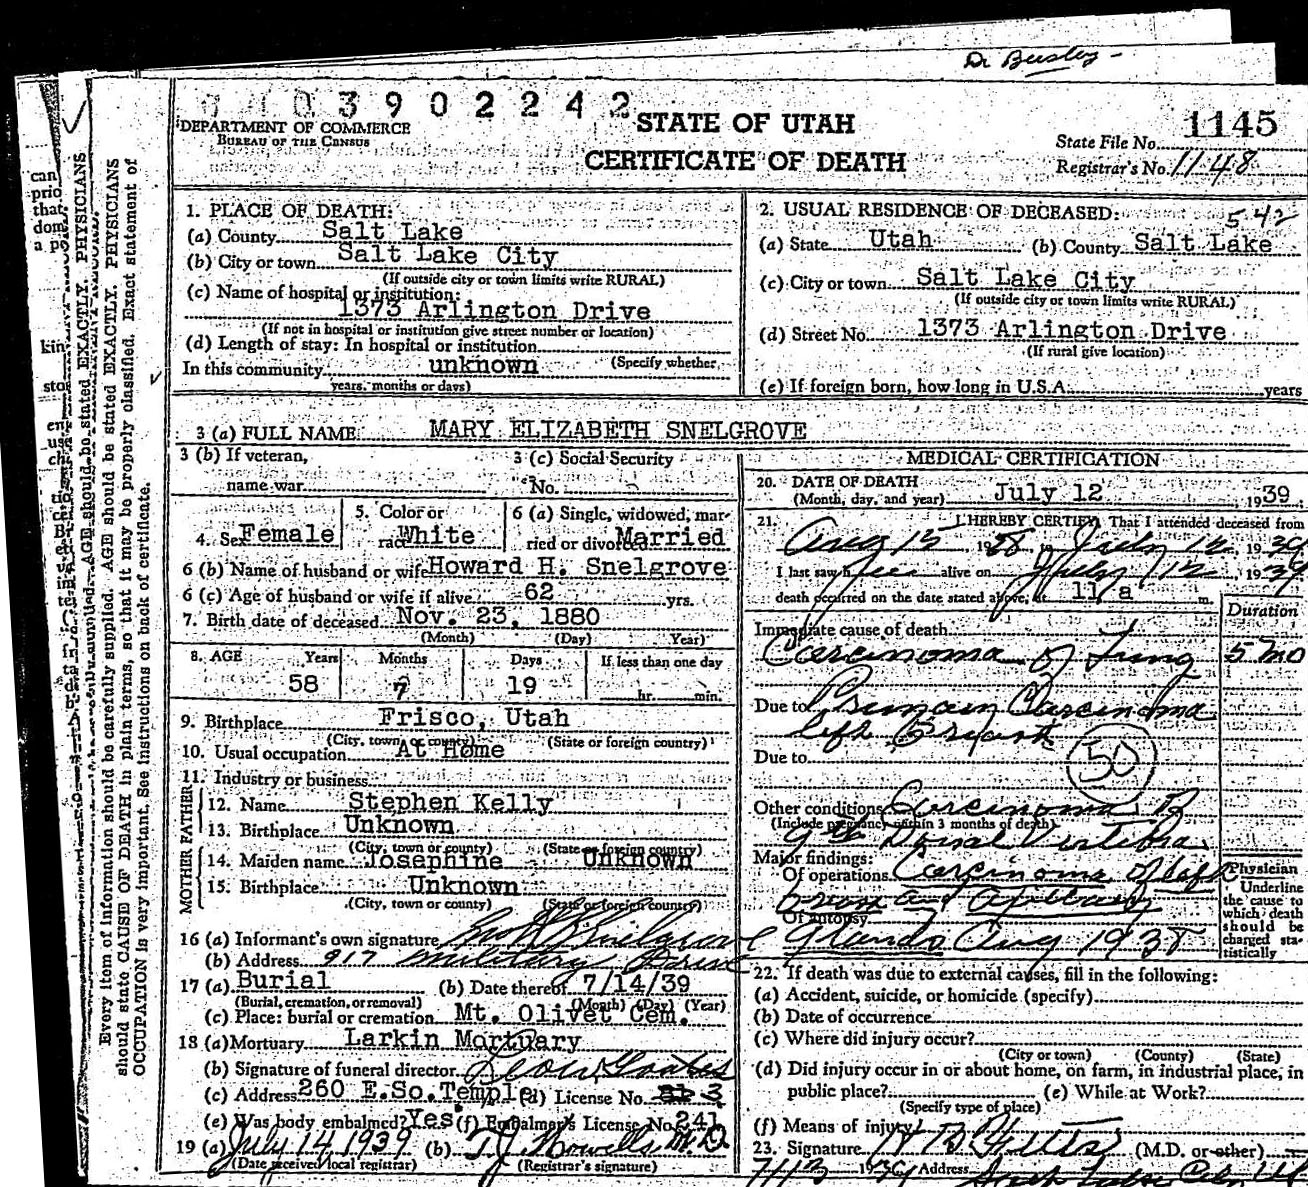 Dr Beesley -
03902242
DEPARTMENT OF COMMERCE
BUREAU OF THE CENSUS
STATE OF UTAH
CERTIFICATE OF DEATH
State File No. 1145
Registrar's No. 1148
1. PLACE OF DEATH:
(a) County Salt Lake
(b) City or town Salt Lake City
(If outside city or town limits write RURAL)
(c) Name of hospital or institution:
1373 Arlington Drive
(If not in hospital or institution give street number or location)
(d) Length of stay: In hospital or institution
In this community unknown (Specify whether
years, months or days)
2. USUAL RESIDENCE OF DECEASED: 542
(a) State Utah (b) County Salt Lake
(c) City or town Salt Lake City
(If outside city or town limits write RURAL)
(d) Street No. 1373 Arlington Drive
(If rural give location)
(e) If foreign born, how long in U.S.A. years
3 (a) FULL NAME MARY ELIZABETH SNELGROVE
3 (b) If veteran,
name war
3 (c) Social Security
No.
4. Sex Female
5. Color or
race White
6 (a) Single, widowed, mar-
ried or divorced Married
6 (b) Name of husband or wife Howard H. Snelgrove
6 (c) Age of husband or wife if alive 62 yrs.
7. Birth date of deceased Nov. 23, 1880
(Month) (Day) Year)
8. AGE Years Months Days If less than one day
58 7 19 hr. min.
9. Birthplace Frisco, Utah
(City, town or county) (State or foreign country)
10. Usual occupation At Home
11. Industry or business
FATHER
12. Name Stephen Kelly
13. Birthplace Unknown
(City, town or county) (State or foreign country)
MOTHER
14. Maiden name Josephine Unknown
15. Birthplace Unknown
(City, town or county) (State or foreign country)
16 (a) Informant's own signature Snelgrove
(b) Address 917 Military Drive
17 (a) Burial (b) Date thereof 7/14/39
(Burial, cremation, or removal) (Month) (Day) (Year)
(c) Place: burial or cremation Mt. Olivet Cem.
18 (a) Mortuary Larkin Mortuary
(b) Signature of funeral director
(c) Address 260 E.So.Temple (d) License No. 3
(e) Was body embalmed? Yes (f) Embalmer's License No. 241
19 (a) July 14, 1939 (b) T.J. Howells M.D.
(Date received local registrar) (Registrar's signature)
MEDICAL CERTIFICATION
20. DATE OF DEATH
(Month, day, and year) July 12 1939
21. I HEREBY CERTIFY, That I attended deceased from
Aug 15 1938, July 12, 1939
I last saw her alive on July 12, 1939
death occurred on the date stated above, at 11 a m.
Duration
Immediate cause of death
Carcinoma of Lung 5 mo
Due to Primary Carcinoma
left Breast
50
Due to
Other conditions Carcinoma
(Include pregnancy within 3 months of death)
9th Dorsal Vertebra
Major findings:
Of operations Carcinoma of left
breast and Axillary
Of autopsy
glands Aug 1938
Physician
Underline
the cause to
which death
should be
charged sta-
tistically
22. If death was due to external causes, fill in the following:
(a) Accident, suicide, or homicide (specify)
(b) Date of occurrence
(c) Where did injury occur?
(City or town) (County) (State)
(d) Did injury occur in or about home, on farm, in industrial place, in
public place? (e) While at Work?
(Specify type of place)
(f) Means of injury
23. Signature (M.D. or other)
7/13 1939 Address Salt Lake City
Every item of information should be carefully supplied. AGE should be stated EXACTLY. PHYSICIANS
should state CAUSE OF DEATH in plain terms, so that it may be properly classified. Exact statement of
OCCUPATION is very important. See instructions on back of certificate.